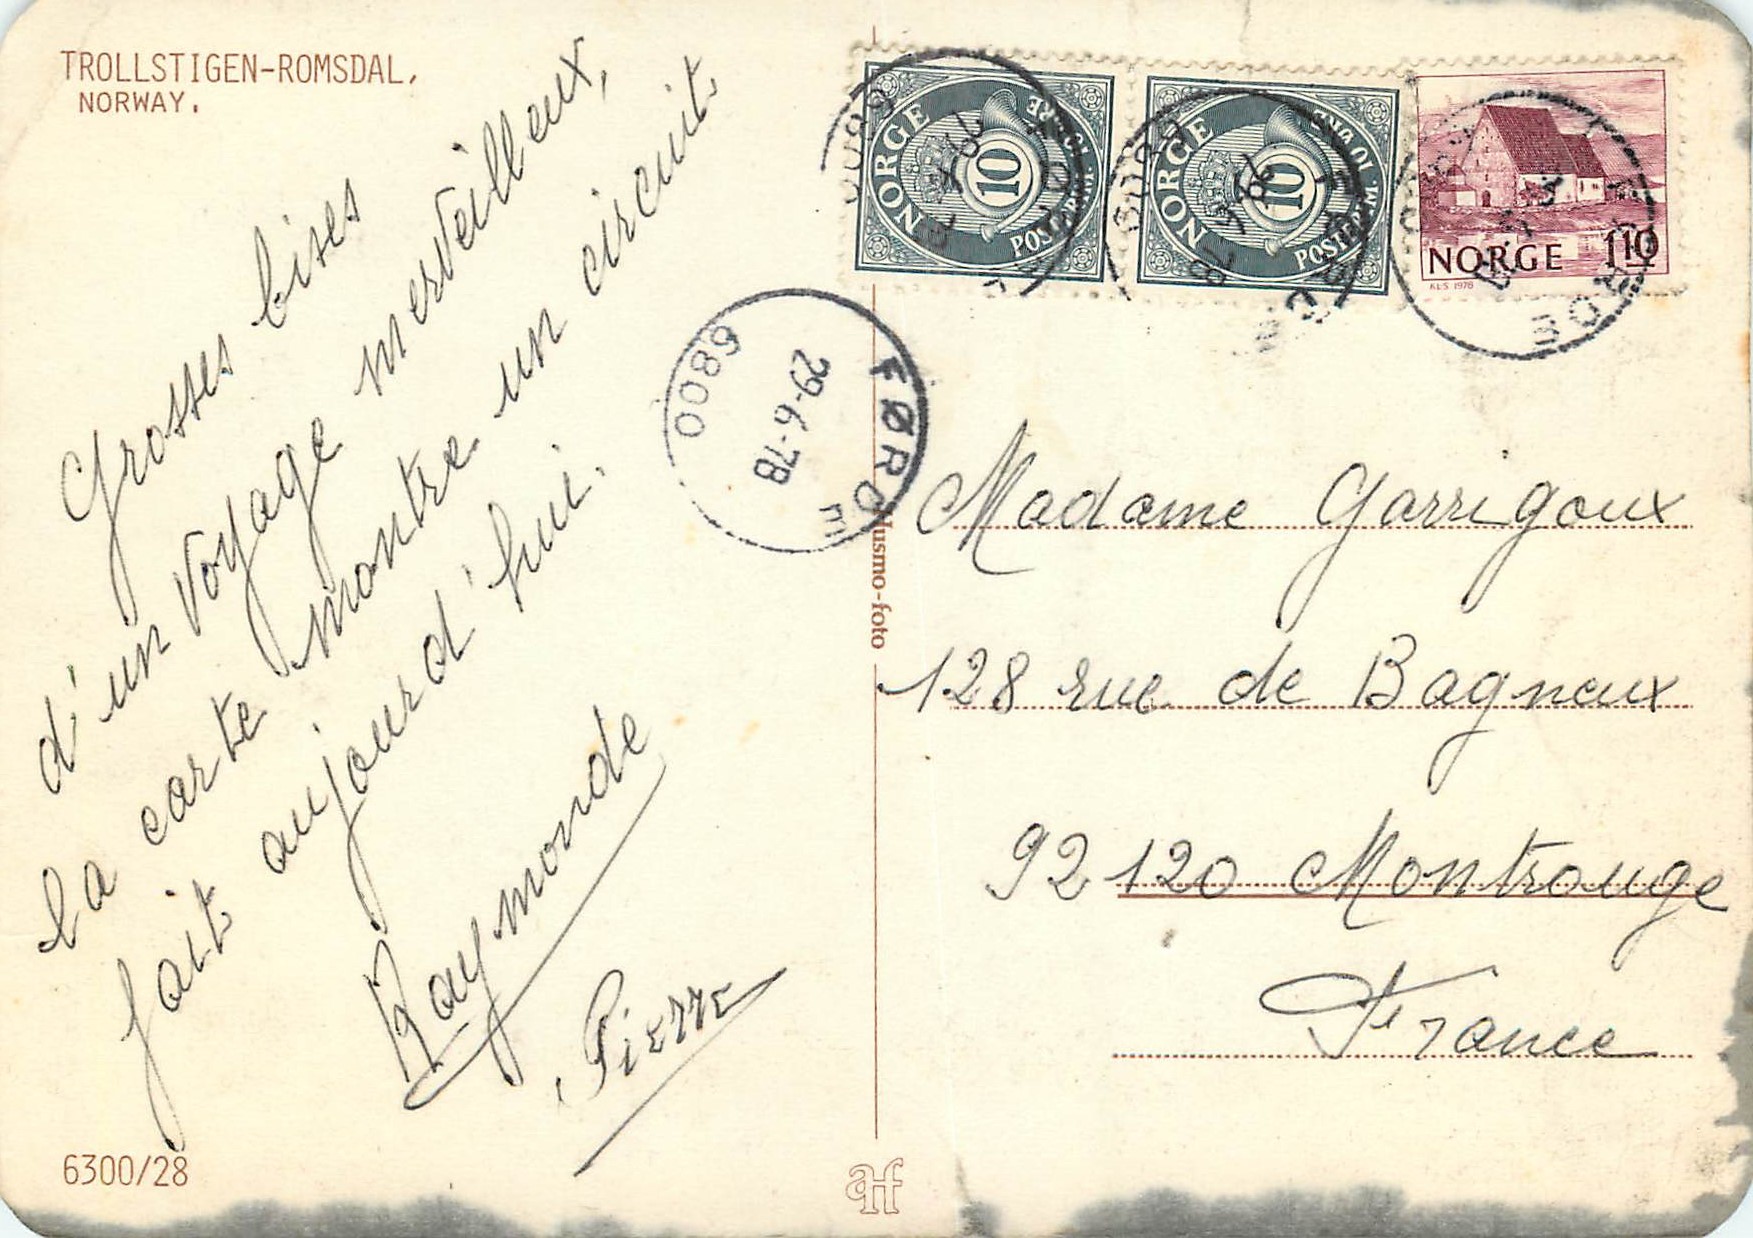 TROLLSTIGEN-ROMSDAL,
NORWAY.
Grosses bises
d'un voyage merveilleux,
la carte montre un circuit
fait aujourd'hui.
Raymonde
Pierre
6300/28
NORGE
10
POSTFRIM. 10 ØRE
NORGE
10
POSTFRIM. 10 ØRE
NORGE 110
K&S 1978
FØRDE
29-6-78
6800
Husmo-foto
Madame Garrigoux
128 rue de Bagneux
92120 Montrouge
France
aHf